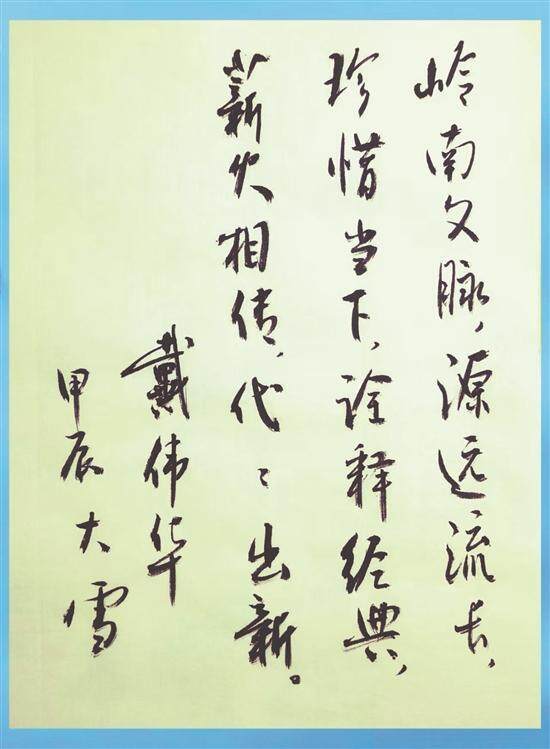 岭南文脉,源远流长,
珍惜当下,诠释经典,
薪火相传,代〻出新。
戴伟华
甲辰大雪